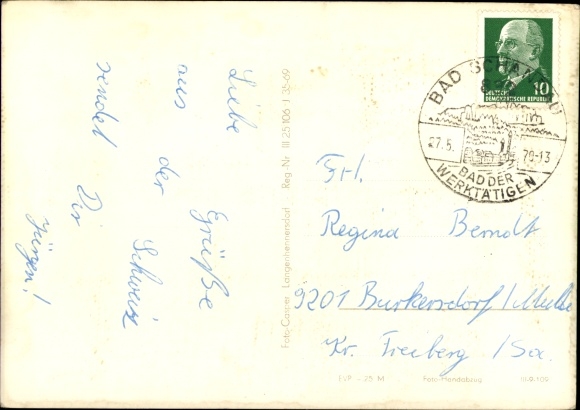 Liebe Grüße
aus der Schweiz
sendet Dir
Jürgen!
Foto-Casper Langenhennersdorf Reg.-Nr. III 25 106 J 35-69
10
DEUTSCHE
DEMOKRATISCHE REPUBLIK
BAD SCHANDAU
27.5. 70-13
BAD DER
WERKTÄTIGEN
Frl.
Regina Berndt
9201 Burkersdorf/Mulde
Kr. Freiberg/Sa.
EVP -,25 M Foto-Handabzug